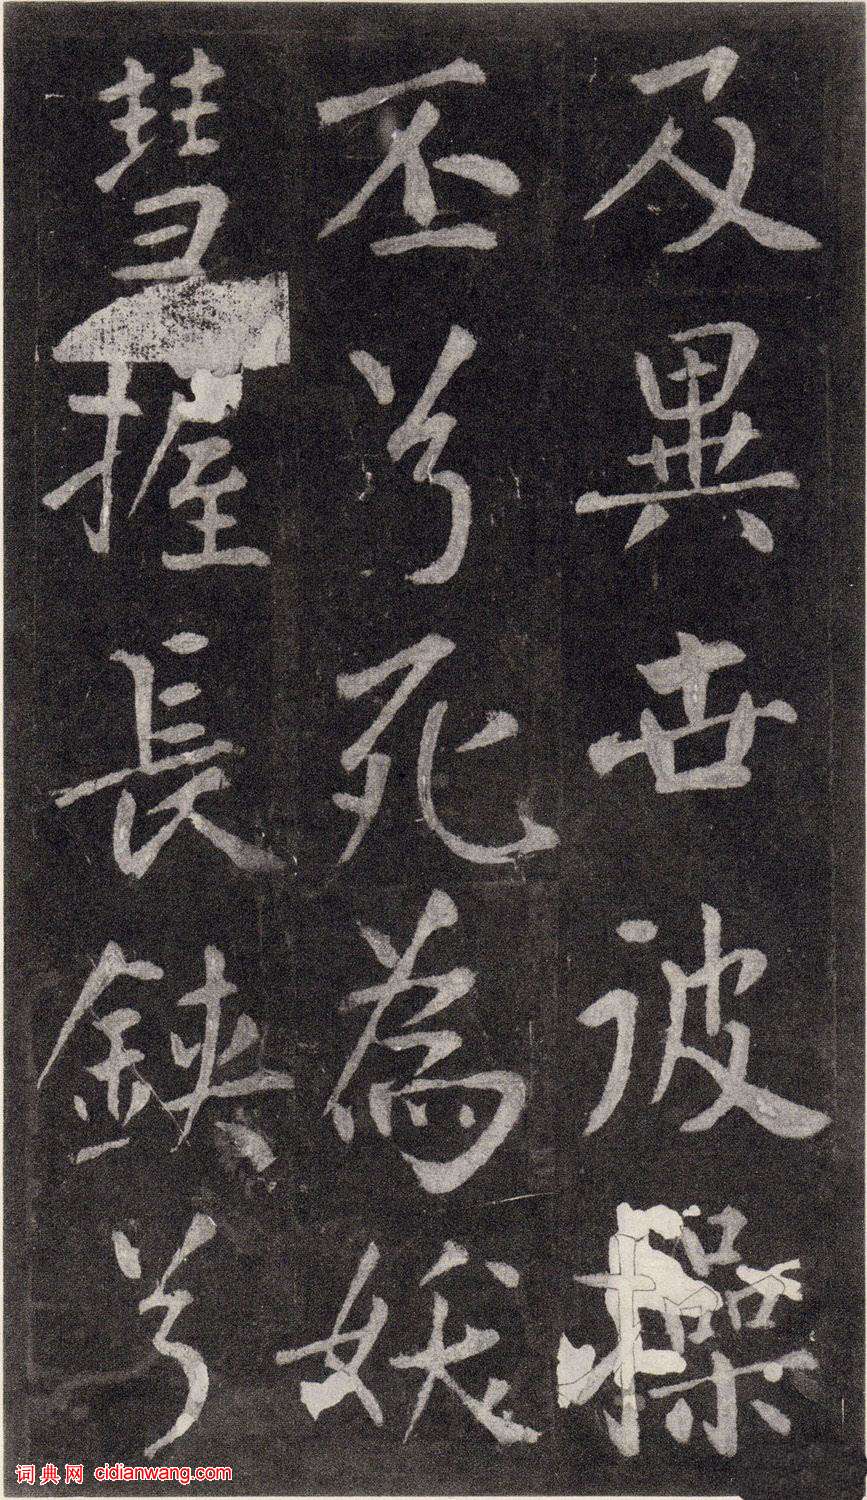 及異世彼操
丕兮死為妖
彗握長鋏兮
词典网 cidianwang.com